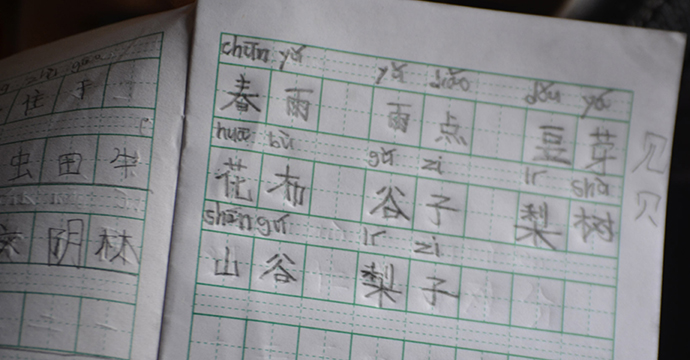 chūn yǔ yǔ diǎo dòu yá
春雨 雨点 豆芽
huā bù gǔ zi lí shù
花布 谷子 梨树
shān gǔ lí zi
山谷 梨子
见
贝
住 于
虫 田 牛
阴 林